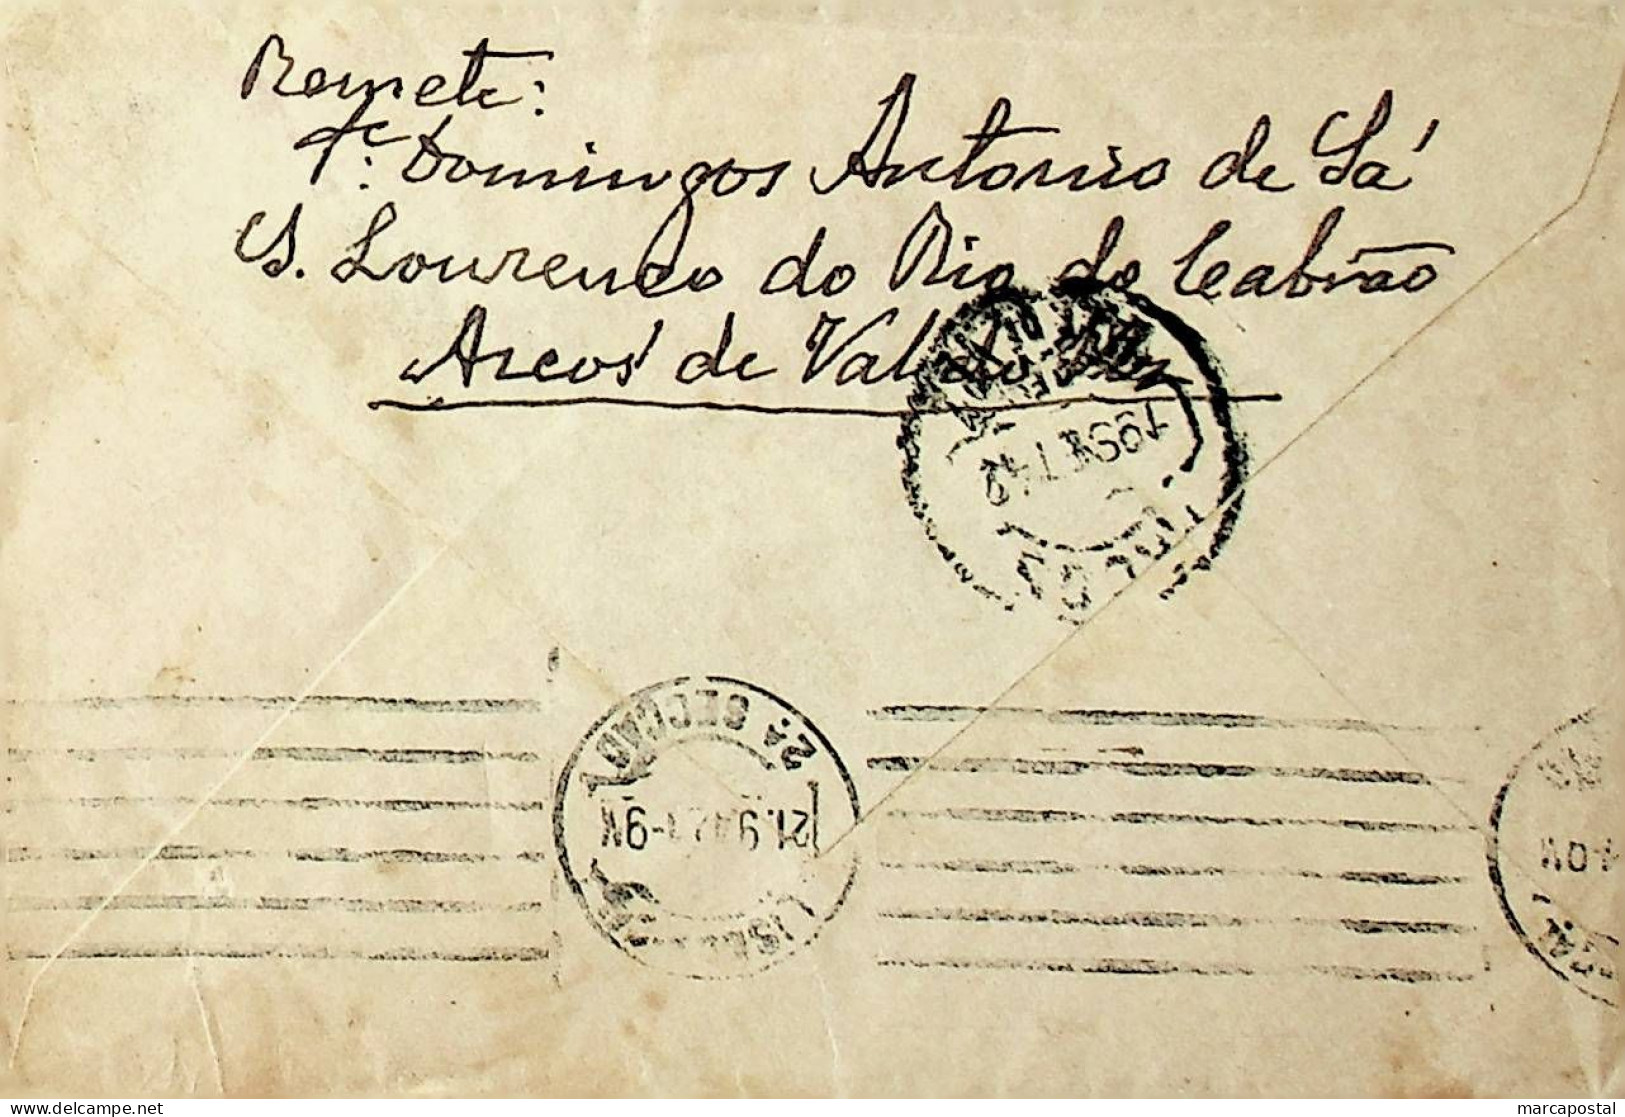 Remete:
Pe. Domingos Antonio de Sá
S. Lourenço do Rio do Cabrão
Arcos de Val do Vez
19 SET 42
2A. SECÇÃO
21.9.42 1-9N
LISBOA
delcampe.net
marcapostal